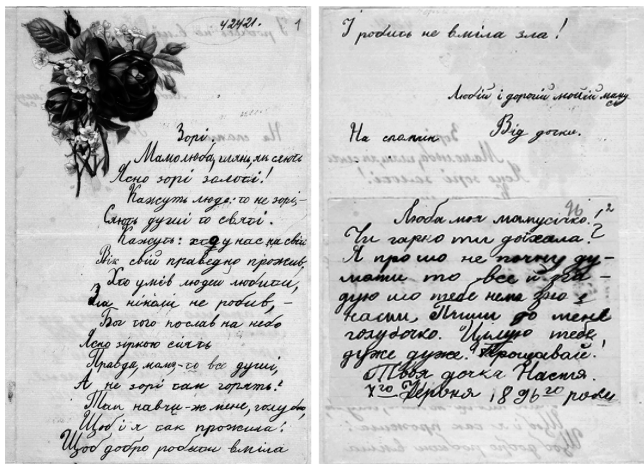 42421. 1
Зорі.
Мамо люба, глянь, як сяють
Ясно зорі золоті!
Кажуть люде: то не зорі –
Сяють душі то святі.
Кажуть: хто у нас на світі
Вік свій праведно прожив,
Хто умів людей любити,
Зла ніколи не робив, –
Бог того послав на небо
Ясно зіркою сіять
Правда, мамо, то все душі,
А не зорі там горять?
Так навчи-ж мене, голубко,
Щоб і я так прожила:
Щоб добро робити вміла
І робить не вміла зла!
Любій і дорогій моїй мамусі
На спомин Від дочки.
96 12
Люба моя мамусічко!
Чи гарно ти доїхала?
Я про що не почну ду-
мати то все й зга-
дую що тебе нема з
нами. Пиши до мене
голубочко. Цілую тебе
дуже дуже. Прощавай!
Твоя дочка Настя.
7го Червня 1896го року